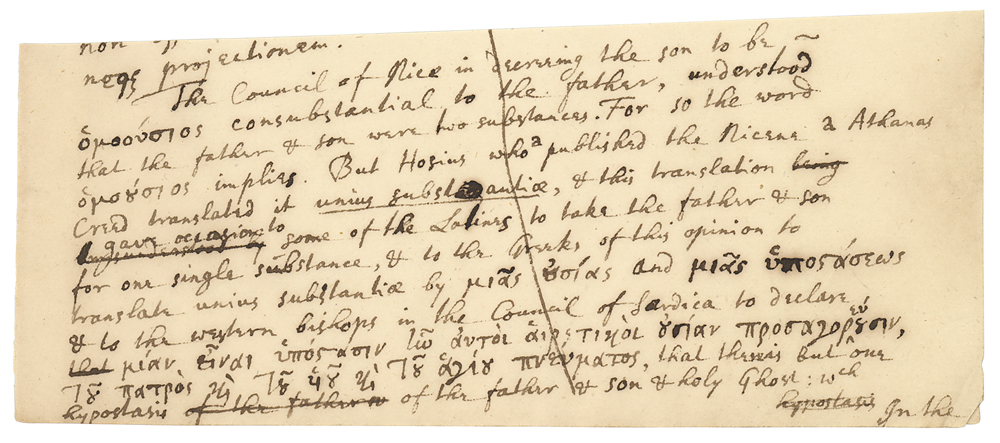 non
neqꝫ projectionem.
The Council of Nice in decreeing the son to be
ὁμοούσιος consubstantial to the father, understood
that the father & son were two substances. For so the word
ὁμοȣ́σιος implies. But Hosius who a published the Nicene a Athanas
Creed translated it unius substantiæ, & this translation being
gave occasion to
misunderstood by some of the Latines to take the father & son
for one single substance, & to the Greeks of this opinion to
translate unius substantiæ by μιᾶς ȣ̓σίας and μιᾶς ὑποστάσεως
& to the western bishops in the Council of Sardica to declare
that μίαν εἶναι ὑπόστασιν ἣν ἀυτοὶ ἁιρετικοὶ ȣ̓σίαν προσαγορέυȣσιν,
τȣ͂ πατρὸς ϗ̀ τȣ͂ ὑιȣ͂ ϗ̀ τȣ͂ ἁγίȣ πνέυματος, that there is but one
hypostasis of the father of the father & son & holy Ghost: wch
hypostasis In the